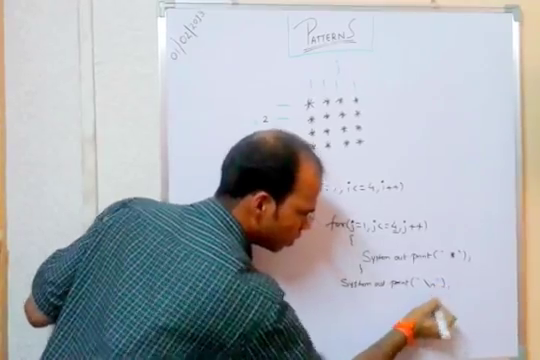 01/02/2013
PATTERNS
* * * *
2 * * * *
* * * *
* * * *
=1, i<=4, i++)
for(j=1, j<=4, j++)
{
System out print("*");
}
System out print("\n");